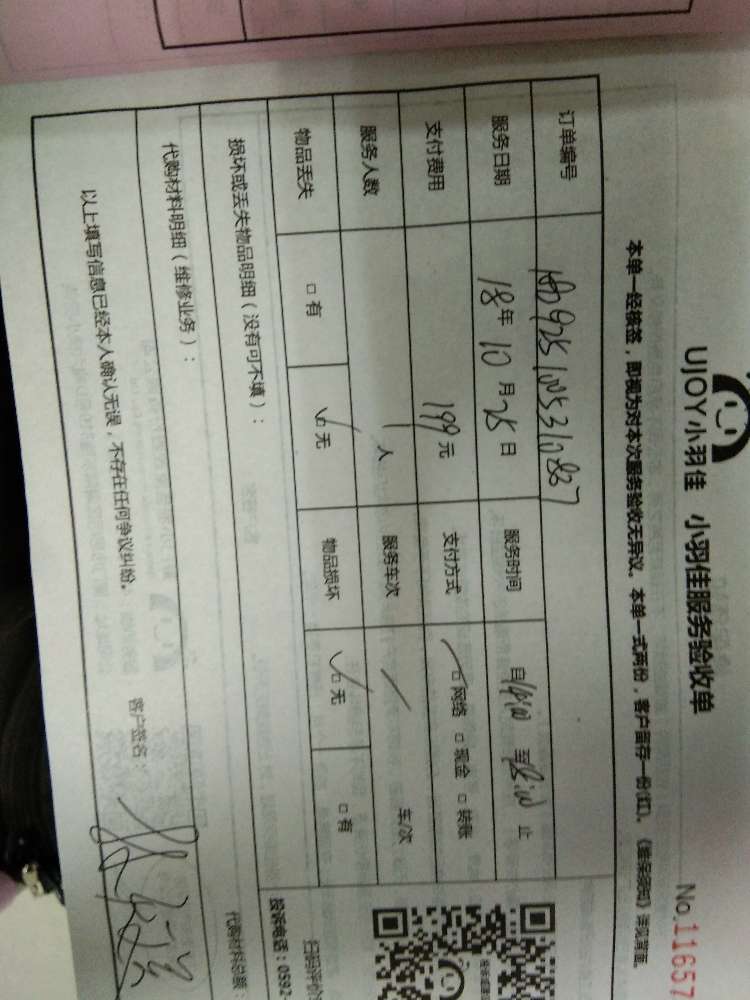 UJOY小羽佳 小羽佳服务验收单
No.11657
本单一经核签，即视为对本次服务验收无异议。本单一式两份，客户留存一份(红)。《维保须知》详见背面。
订单编号
服务日期 18年10月25日 服务时间 自 至 止
支付费用 199元 支付方式 ☑网络 □现金 □转账
服务人数 1人 服务车次 / 车/次
物品丢失 □有 ☑无 物品损坏 ☑无 □有
损坏或丢失物品明细（没有可不填）：
扫码评价
投诉电话：0592-
代购材料明细（维修业务）：
代购材料总额：
以上填写信息已经本人确认无误，不存在任何争议纠纷。 客户签名：